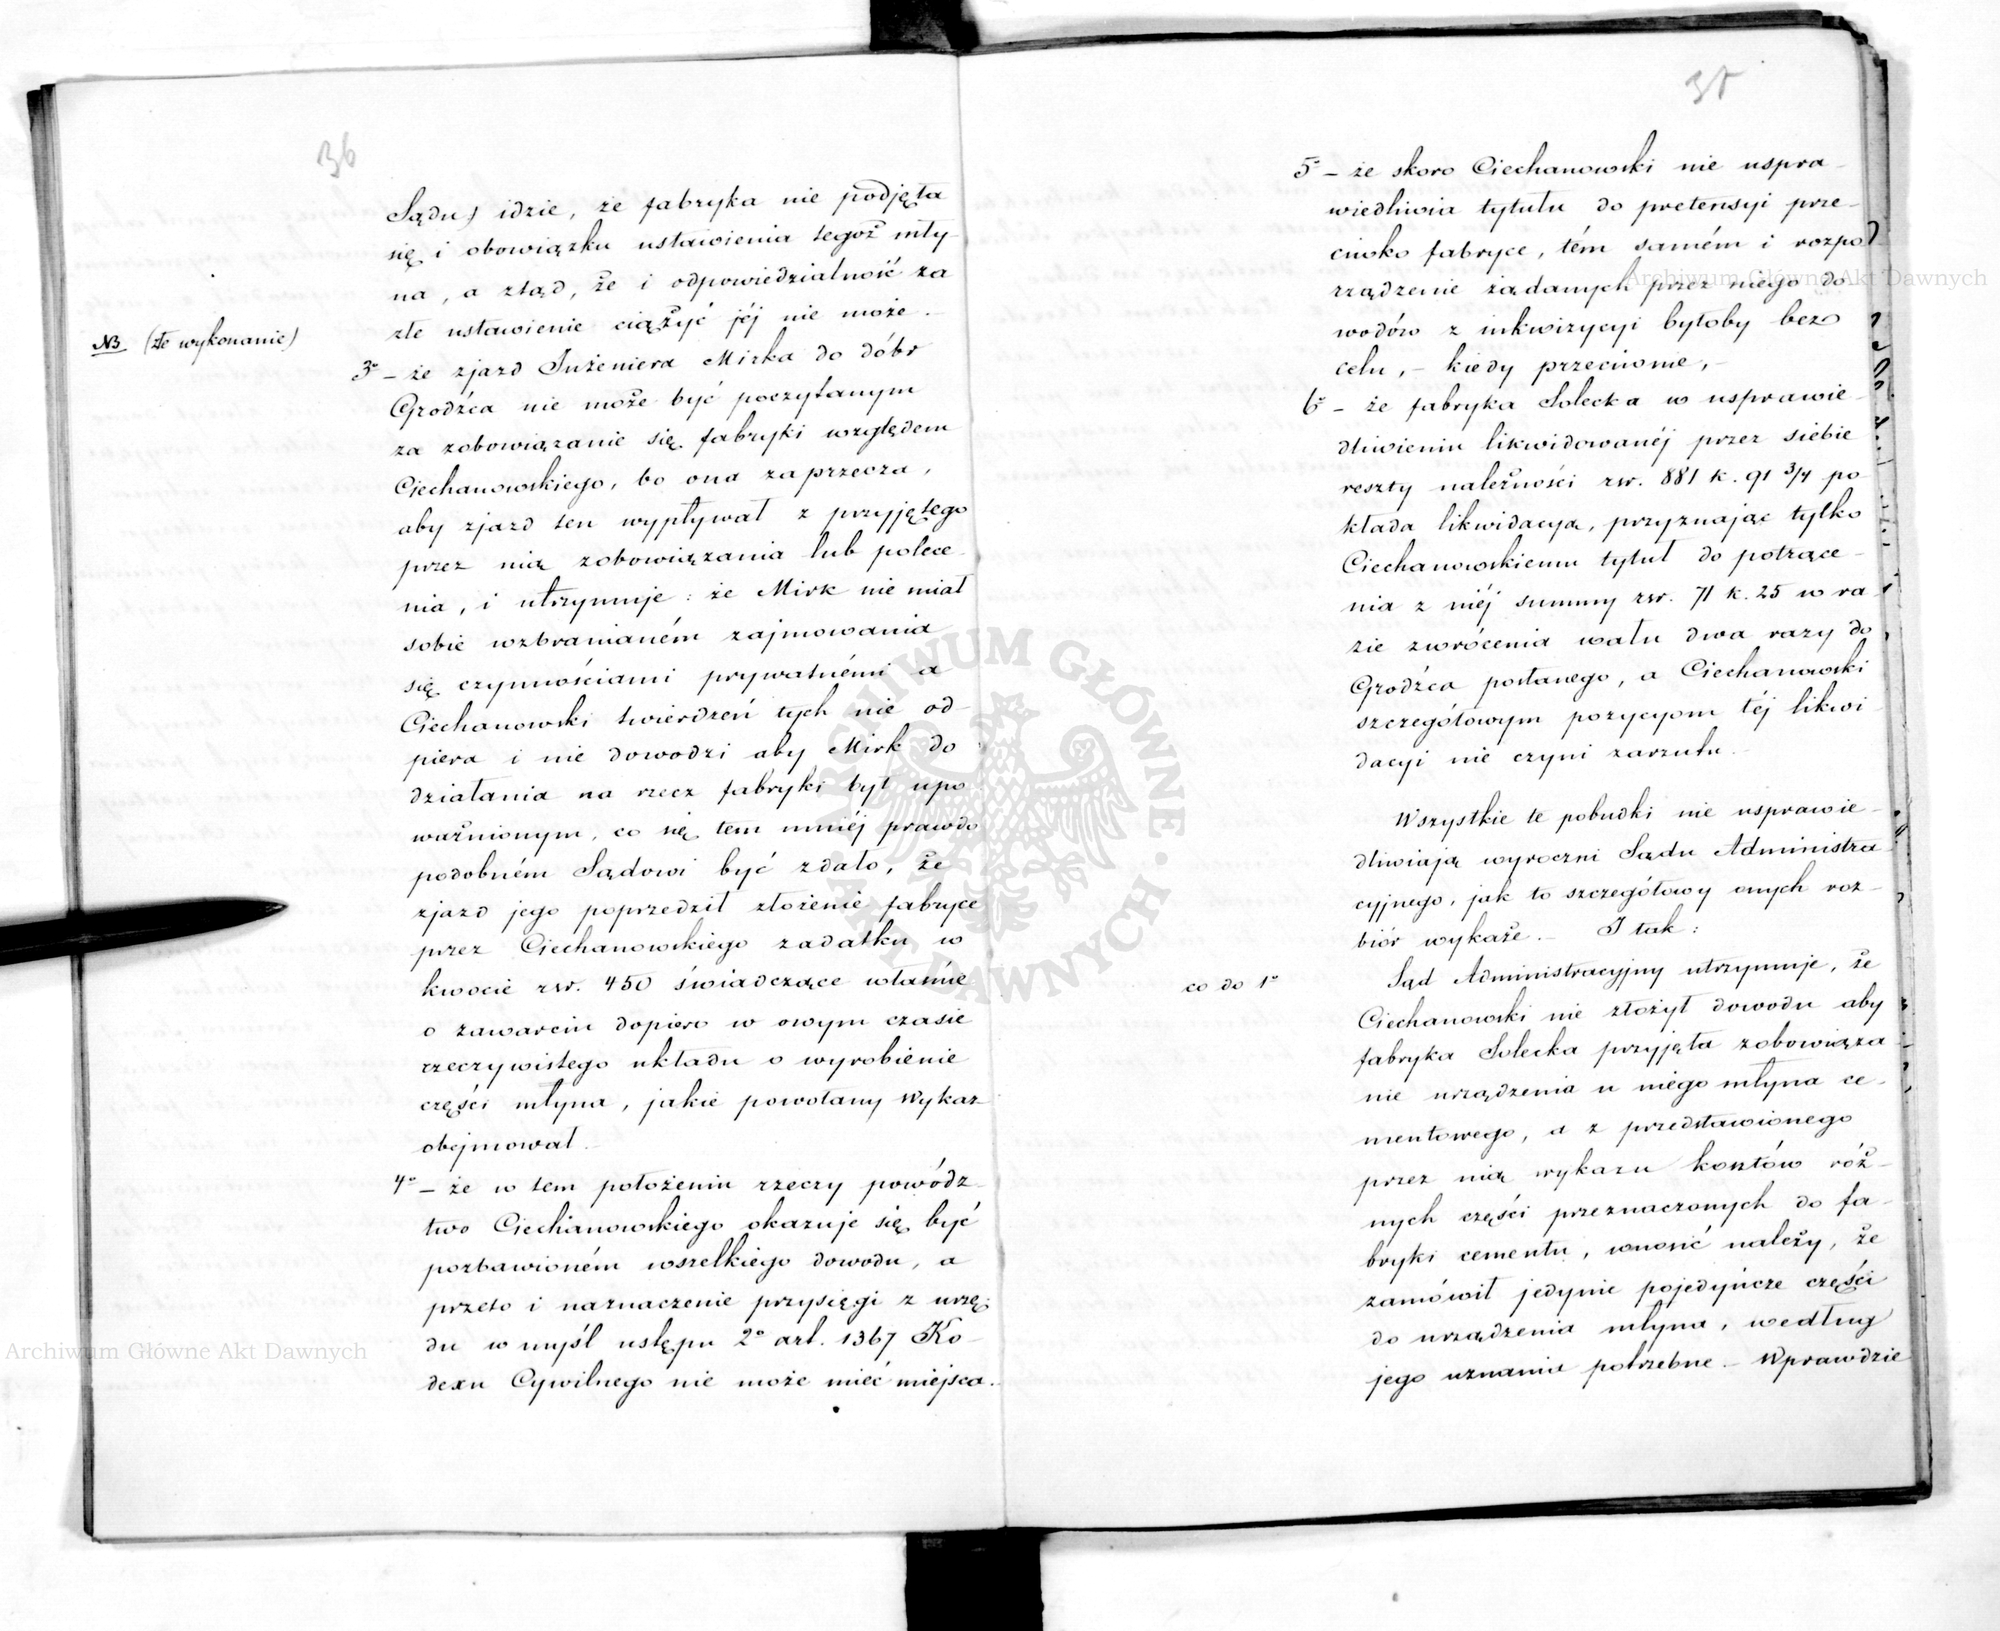 36
Sądu) idzie, że fabryka nie podjęła
się i obowiązku ustawienia tegoż mły-
na, a ztąd, że i odpowiedzialność za
złe ustawienie ciążyć jéj nie może.
NB (złe wykonanie)
3º – że zjazd Inżeniera Mirka do dóbr
Grodźca nie może być poczytanym
za zobowiązanie się fabryki względem
Ciechanowskiego, bo ona zaprzecza,
aby zjazd ten wypływał z przyjętego
przez nią zobowiązania lub polece-
nia, i utrzymuje: że Mirk nie miał
sobie wzbranianém zajmowania
się czynnościami prywatnémi a
Ciechanowski twierdzeń tych nie od-
piera i nie dowodzi aby Mirk do
działania na rzecz fabryki był upo
ważnionym, co się tem mniéj prawdo
podobném Sądowi być zdało, że
zjazd jego poprzedził złożenie fabryce
przez Ciechanowskiego zadatku w
kwocie rsr. 450 świadczące właśnie
o zawarciu dopiero w owym czasie
rzeczywistego układu o wyrobienie
części młyna, jakie powołany wykaz
obejmował.
4º – że w tem położeniu rzeczy powódz-
two Ciechanowskiego okazuje się być
pozbawioném wszelkiego dowodu, a
przeto i naznaczenie przysięgi z urzę-
du w myśl ustępu 2º art. 1367 Ko-
dexu Cywilnego nie może mieć miejsca.
37
5º – że skoro Ciechanowski nie uspra-
wiedliwia tytułu do pretensyi prze-
ciwko fabryce, tém samém i rozpo
rządzenie żądanych przez niego do
wodów z inkwizycyi byłoby bez
celu, – kiedy przeciwnie, –
6º – że fabryka Solecka w usprawie-
dliwieniu likwidowanéj przez siebie
reszty należności rsr. 881 k. 91 3/4 po-
kłada likwidacyą, przyznając tylko
Ciechanowskiemu tytuł do potrące-
nia z niéj summy rsr. 71 k. 25 w ra
zie zwrócenia wału dwa razy do
Grodźca posłanego, a Ciechanowski
szczegółowym pozycyom téj likwi
dacyi nie czyni zarzutu. –
Wszystkie te pobudki nie usprawie-
dliwiają wyroczni Sądu Administra
cyjnego, jak to szczegółowy onych roz-
biór wykaże. – I tak:
co do 1º
Sąd Administracyjny utrzymuje, że
Ciechanowski nie złożył dowodu aby
fabryka Solecka przyjęła zobowiąza
nie urządzenia u niego młyna ce-
mentowego, a z przedstawionego
przez nią wykazu kosztów róż-
nych części przeznaczonych do fa-
bryki cementu, wnosić należy, że
zamówił jedynie pojedyńcze części
do urządzenia młyna, według
jego uznania potrzebne. – Wprawdzie
Archiwum Główne Akt Dawnych
Archiwum Główne Akt Dawnych
ARCHIWUM GŁÓWNE · AKT DAWNYCH ·